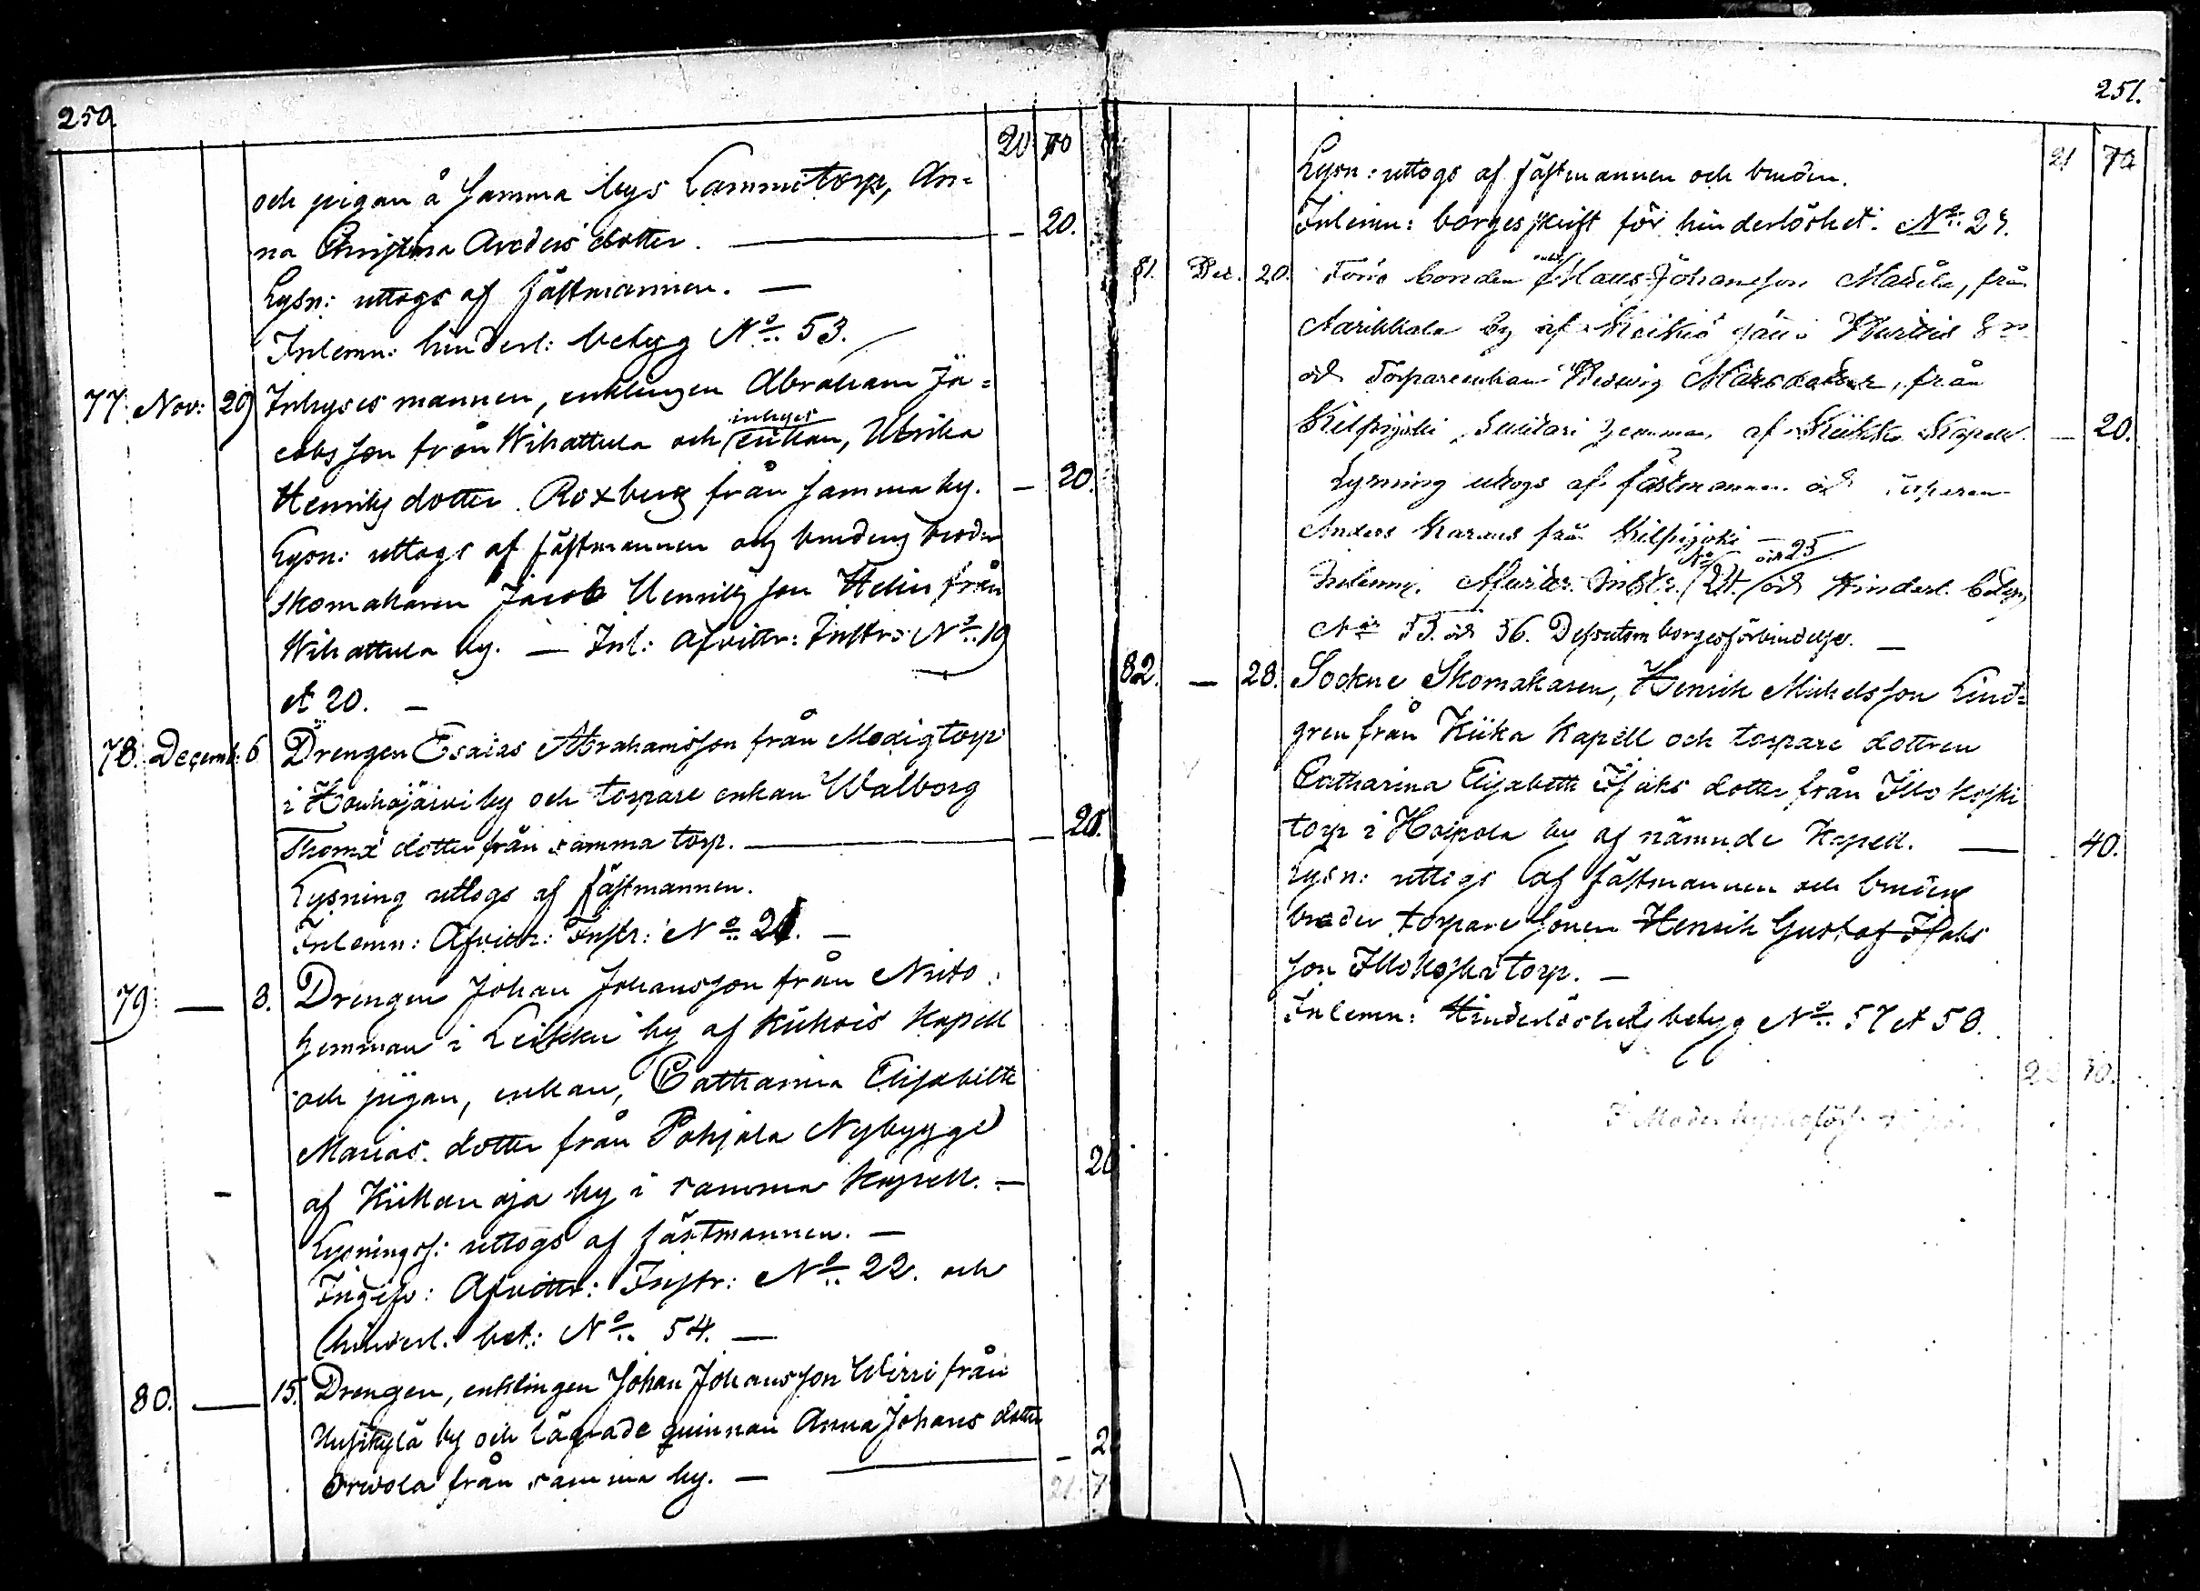 250.
20 70
och pigan å samma bys Lammi torp, An=
na Christina Anders dotter. — 20.
Lysn: uttogs af fästmannen. —
Inlemn: hinderl: betyg No. 53.
77. Nov: 29 Inhyses mannen, enklingen Abraham Ja=
cobsson från Wihattula och inhyses enkan, Ulrika
Henriks dotter Roxberg från samma by. — 20.
Lysn: uttogs af fästmannen och brudens broder
skomakaren Jacob Henriksson Helin från
Wihattula by. — Inl: Afvittr: Instr: No. 19
et 20. —
78. Decemb: 6 Drengen Esaias Abrahamsson från Modig torp
i Houhajärvi by och torpare enkan Walborg
Thomæ dotter från samma torp. — 20.
Lysning uttogs af fästmannen.
Inlemn: Afvittr: Instr: No. 21. —
79 — 8. Drengen Johan Johansson från
hemman i Leikku by af Kiikois Kapell
och pigan, enkan, Catharina Elisabeth
Mariæ dotter från Pohjala Nybygge
af Kiikanoja by i samma Kapell. — 20
Lysnings: uttogs af fästmannen. —
Ingifv: Afvittr: Instr: No. 22. och
hinderl. bet: No. 54. —
80. — 15. Drengen, enklingen Johan Johansson Wirri från
Uusikylä by och lägrade quinnan Anna Johans dotter
Orwola från samma by. — 2
21. 7
251.
21 70
Lysn: uttogs af fästmannen och bruden.
Inlemn: borgesskrift för hinderlöshet. No. 23.
81. Dec. 20. bonden Johansson från
by af i
och Torpareenkan Hedwig från
Kilpijoki hemman af Kiikka Kapell. — 20.
Lysning uttogs af fästmannen och torparen
Anders från Kilpijoki —
Inlemn. Afvittr. Instr. No 24. och 25 och Hinderl. betyg
No 55. och 56. Dessutom borgesförbindelse. —
82. — 28. Sockne Skomakaren, Henrik Michelsson Lind=
gren från Kiika Kapell och torpare dottren
Catharina Elisabeth Isaks dotter från Illokoski
torp i Haapola by af nämnde Kapell. — 40.
Lysn: uttogs af fästmannen och brudens
broder torpare sonen Henrik Gustaf Isaks
son Illokoski torp. —
Inlemn: Hinderlöshets betyg No. 57 et 58.
2 30.